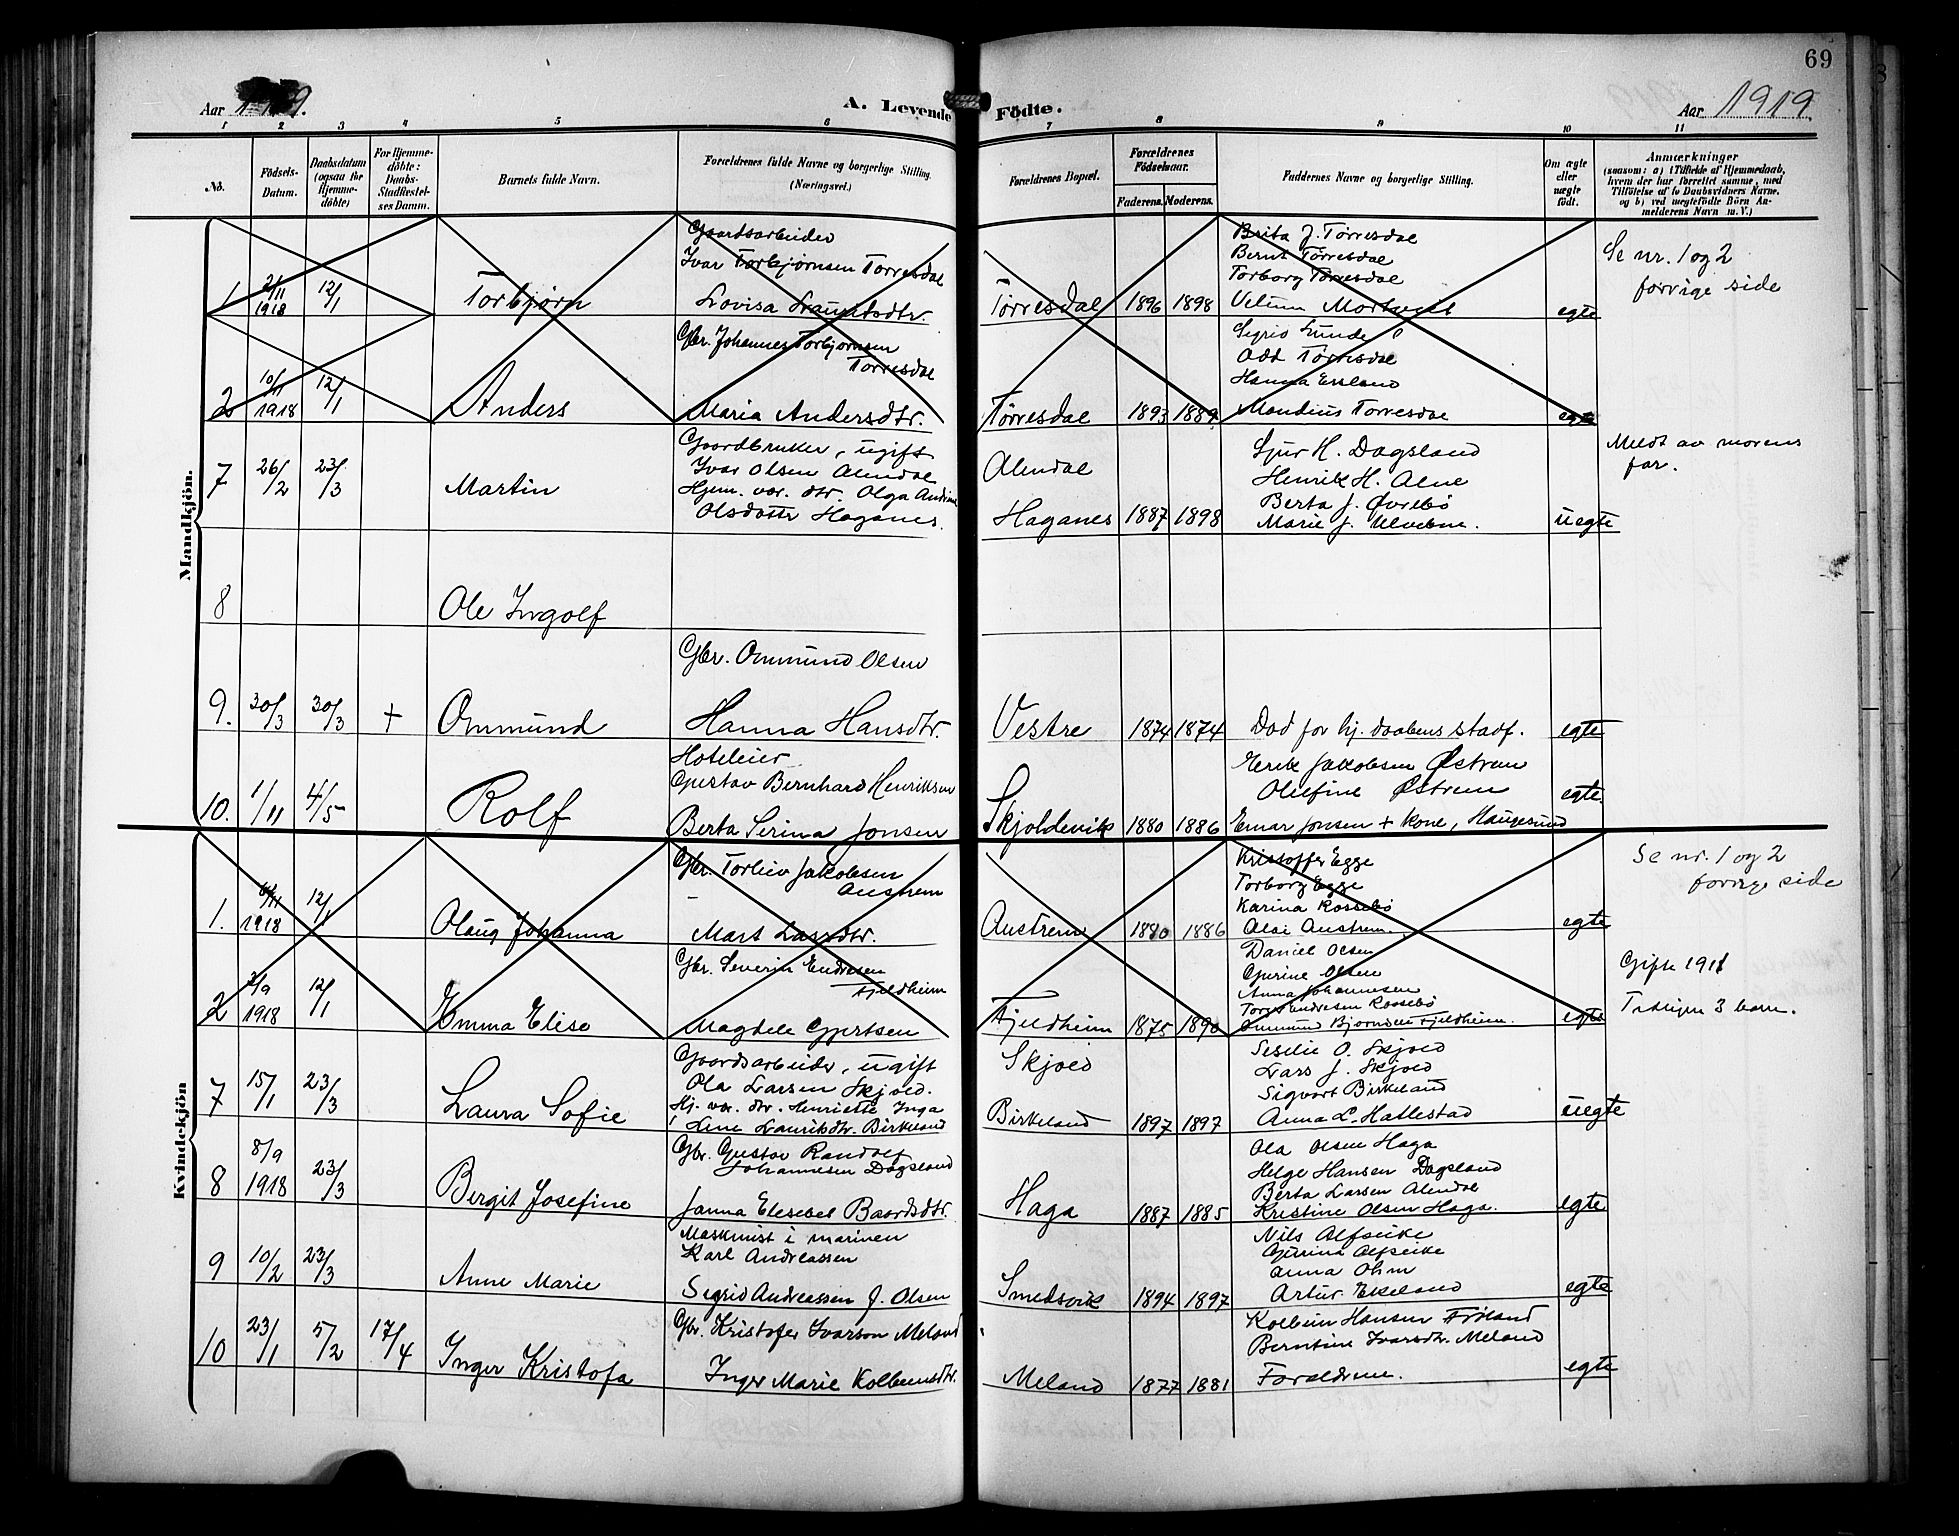 69
Aar 1919.
A. Levende Födte.
Aar 1919.
1 2 3 4 5 6 7 8 9 10 11
No.
Födsels-Datum.
Daabsdatum (ogsaa for Hjemme-döbte)
For Hjemme-döbte: Daabs-Stadfestel-ses Datum.
Barnets fulde Navn.
Forældrenes fulde Navne og borgerlige Stilling. (Næringsvei.)
Forældrenes Bopæl.
Forældrenes Födselsaar.
Faderens. Moderens.
Faddernes Navne og borgerlige Stilling.
Om ægte eller uægte födt.
Anmærkninger
(saasom: a) i Tilfælde af Hjemmedaab, hvem der har forrettet samme, med Tilföielse af to Daabsvidners Navne, og b) ved uægtefödte Börn An-melderens Navn m. V.)
Mandkjön.
1 2/11 1918 12/1 Torbjørn
Gaardsarbeider
Ivar Torbjørnsen Tørresdal
Lovisa
Tørresdal 1896 1898
Brita J. Tørresdal
Bernt Tørresdal
Torborg Tørresdal
egte
Se nr. 1 og 2
forrige side
2 10/11 1918 12/1 Anders
Gbr. Johannes Torbjørnsen
Tørresdal
Maria Andersdtr.
Tørresdal 1893 1889
Sigrid Lunde
Odd Tørresdal
Hanna
Mandius Tørresdal
egte
7 26/2 23/3 Martin
Gaardbruker, ugift
Ivar Olsen Alendal
Hjem. vær. dtr. Olga Andine
Olsdatter Haganes.
Alendal
Haganes 1887 1898
Sjur H. Dagsland
Henrik H. Alne
Berta J. Øvrebø
Marie J.
uegte
Meldt av morens
far.
8 Ole Ingolf
9. 30/3 30/3 + Ommund
Gbr. Ommund Olsen
Hanna Hansdtr.
Vestre 1874 1874
Død før hj. daabens stadf.
egte
10. 1/11 4/5 Rolf
Hoteleier
Gustav Bernhard Henriksen
Berta Serina Jonsen
Skjoldevik 1880 1886
Henrik Jakobsen Østrem
Olefine Østrem
Einar Jonsen + kone, Haugesund
egte.
Kvindekjön
1. 12/1 1918 Olaug Johanna
Gbr. Torleiv Jakobsen
Austrem
Mart Larsdtr.
Austrem 1880 1886
Kristoffer Egge
Torborg Egge
Karina Rossebø
Austrem
egte
Se nr. 1 og 2
forrige side
2 2/9 1918 12/1 Emma Elise
Gbr. Severin Endresen
Fjeldheim
Magdele Gjertsen
Fjeldheim 1875 1890
Daniel Olsen
Gurine Olsen
Anna Johannesen
Endresen Rossebø
Ommund Bjørnsen Fjeldheim.
egte
Gifte 1911
Tidligere 3 barn.
7 15/1 23/3 Laura Sofie
Gaardsarbeider, ugift
Ola Larsen Skjold.
Hj. vær. dtr. Henriette Inga
Line Lauritsdtr. Birkeland
Skjold
Birkeland 1897 1897
Seselie O. Skjold
Lars J. Skjold
Sigvart Birkeland
Anna L. Hatlestad
uegte
8 8/9 1918 23/3 Bergit Josefine
Gbr. Gustav Randolf
Johannesen Dagsland
Janna Elesebet Baardsdtr.
Haga 1887 1885
Ola Olsen Haga
Helge Hansen Dagsland
Berta Larsen Alendal
Kristine Olsen Haga.
egte
9 10/2 23/3 Anne Marie
Maskinist i marinen
Karl Andreassen
Sigrid Andreassen f. Olsen
Smedsvik 1894 1897
Nils Alfseike
Gurina Alfseike
Anna Ohm
Artur Ekeland
egte
10 23/1 5/2 17/4 Inger Kristofa
Gbr. Kristofer Ivarson Meland
Inger Marie Kolbeinsdtr.
Meland 1877 1881
Kolbein Hansen Frøland
Berntine Ivarsdtr. Meland
Forældrene.
egte